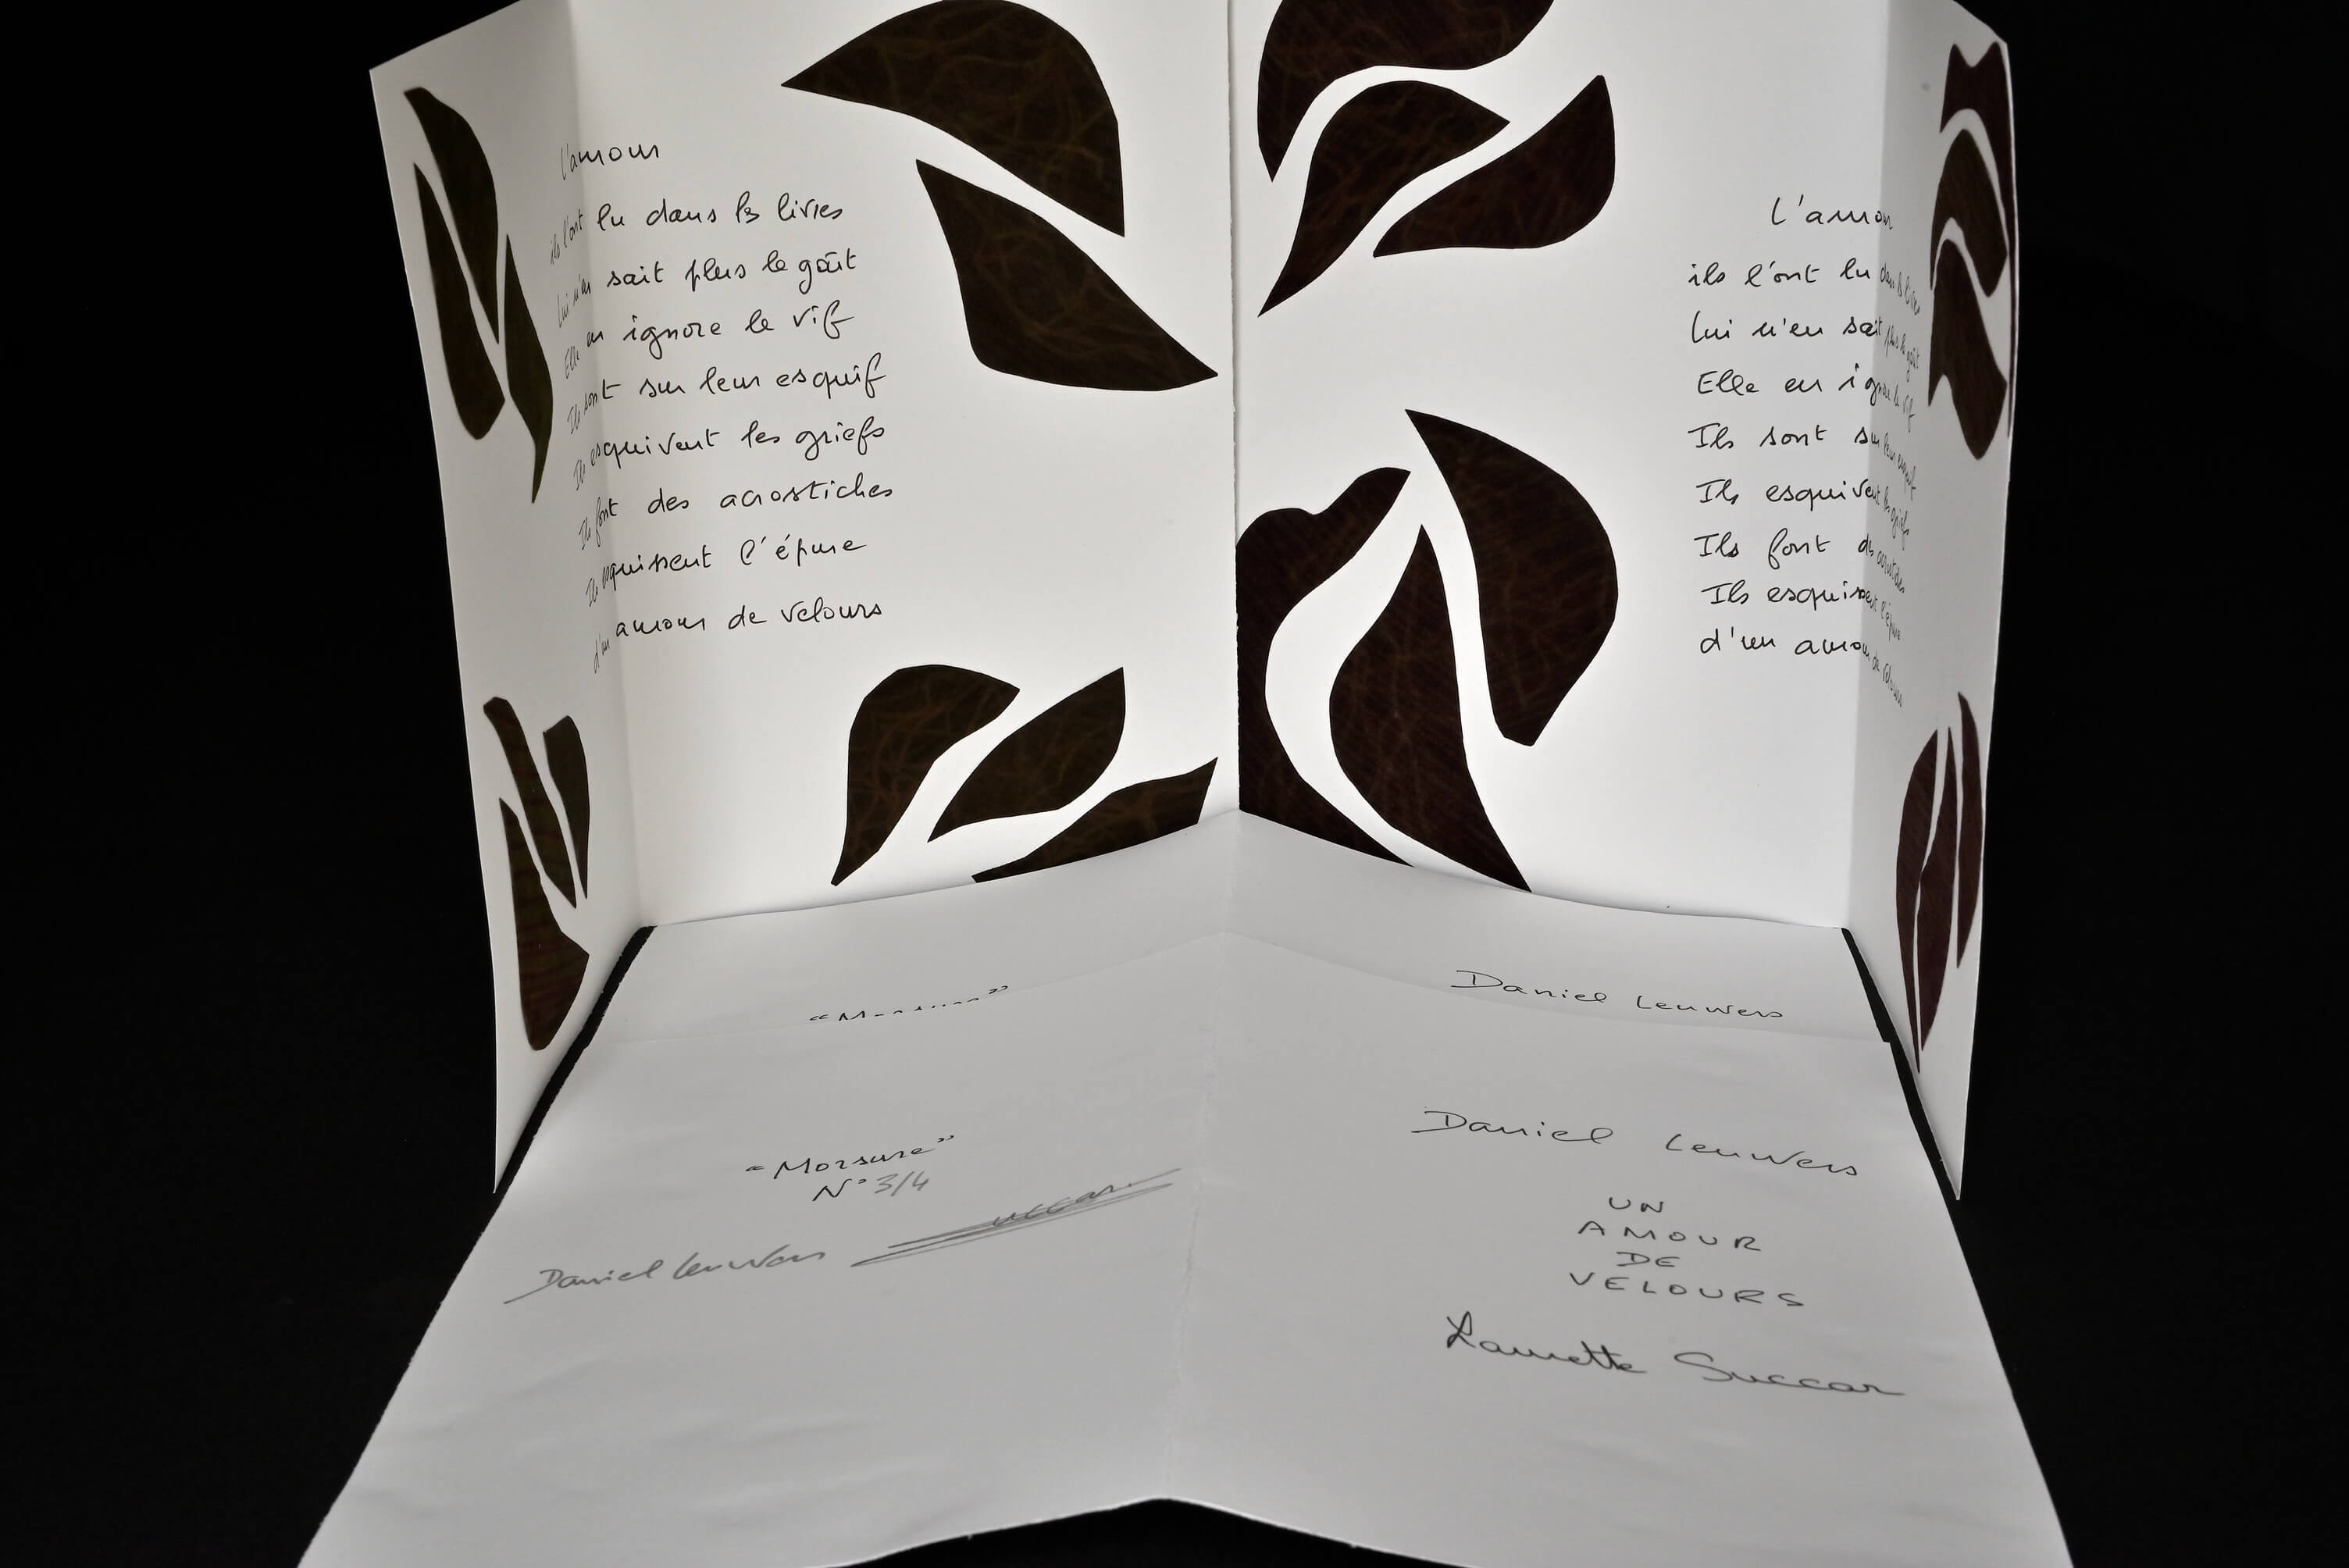 l'amour
ils l'ont lu dans les livres
Lui n'en sait plus le goût
Elle en ignore le vif
Ils sont sur leur esquif
Ils esquivent les griefs
Ils font des acrostiches
Ils esquissent l'épure
d'un amour de velours
L'amour
ils l'ont lu dans les livres
Lui n'en sait plus le goût
Elle en ignore le vif
Ils sont sur leur esquif
Ils esquivent les griefs
Ils font des acrostiches
Ils esquissent l'épure
d'un amour de velours
Daniel Leuwers
"Morsure"
N° 3/4
Daniel Leuwers Succar
Daniel Leuwers
UN
AMOUR
DE
VELOURS
Laurette Succar